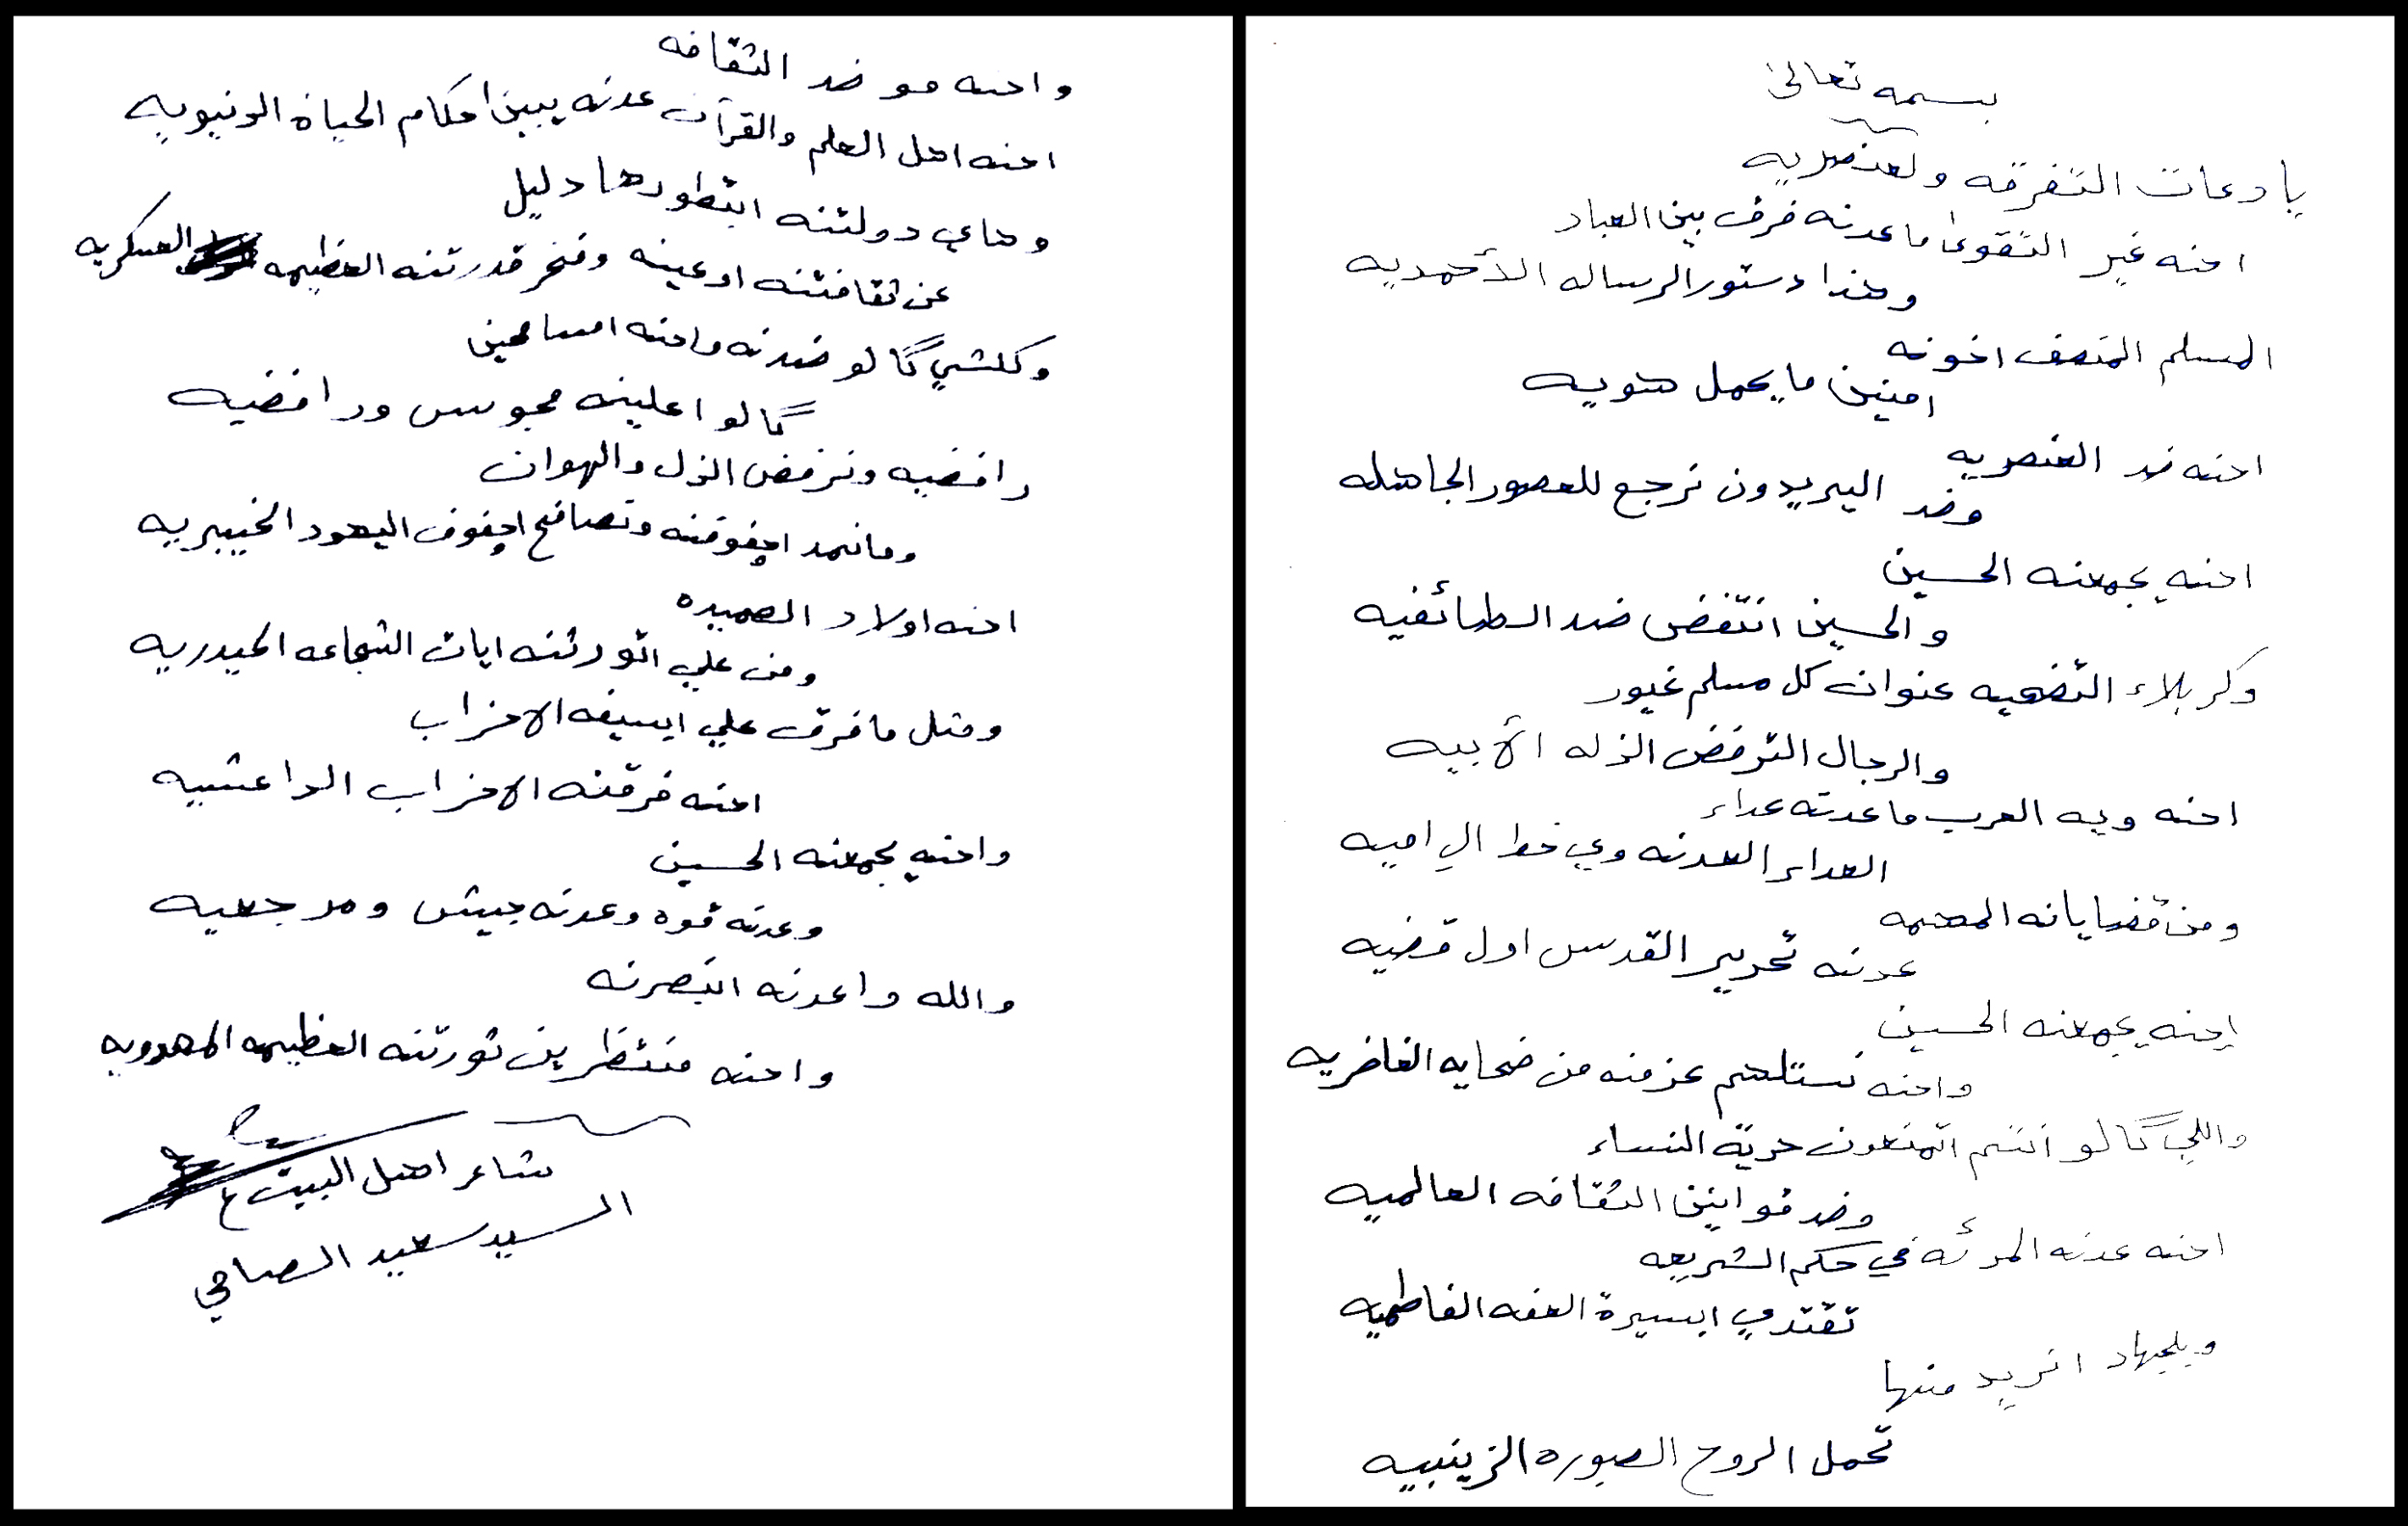 بسمه تعالى
يا دعات التفرقه ولعنصريه
احنه غير التقوى ما عدنه فرق بين العباد
وهذا دستور الرساله الأحمديه
المسلم المنصف اخونه
امنين ما يحمل هويه
احنه ضد العنصريه
وضد اليريدون نرجع للعصور الجاهله
احنه يجمعنه الحسين
والحسين انتفض ضد الطائفيه
وكربلاء التضحيه عنوان كل مسلم غيور
والرجال الترفض الذله الأبيه
احنه ويه العرب ما عدنه عداء
العداء العدنه وي خط ال اميه
ومن قضايانه المهمه
عدنه تحرير القدس اول قضيه
إحنه يجمعنه الحسين
واحنه نستلهم عزمنه من ضحايه الغاضريه
واللي گالو انتم اتمنعون حرية النساء
وضد قوانين الثقافه العالميه
احنه عدنه المرئه في حكم الشريعه
تقتدي ابسيرة العفه الفاطميه
وبلجهاد انريد منها
تحمل الروح الصبوره الزينبيه
واحنه مو ضد الثقافه
احنه اهل العلم والقرآن عدنه يبين احكام الحياة الدنيويه
وهاي دولتنه ابتطورها دليل
عن ثقافتنه اوعينه وفخر قدرتنه العظيمه العسكريه
وكلشي گالو ضدنه واحنه امسامحين
گالو اعلينه مجوس ورافضيه
رافضيه ونرفض الذل والهوان
وما نمد اچفوفنه ونصافح اچفوف اليهود الخيبريه
احنه اولاد الصميده
ومن علي اتورثنه ايات الشجاعه الحيدريه
ومثل ما فرق علي ابسيفه الاحزاب
احنه فرقنه الاحزاب الداعشيه
واحنه يجمعنه الحسين
وعدنه قوه وعدنه جيش ومرجعيه
والله واعدنه ابنصرنه
واحنه منتظرين ثورتنه العظيمه المهدويه
شاعر اهل البيت ع
السيد سعيد الصافي